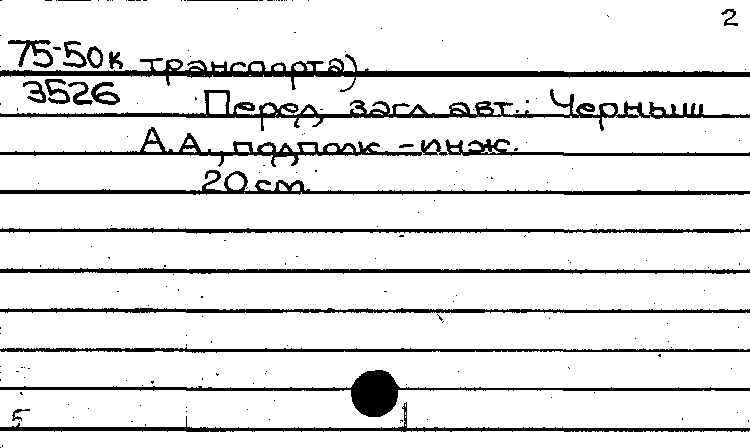 2
75-50к транспорта).
3526 Перед загл. авт.: Черныш
А.А., подполк.-инж.
20 см.
5